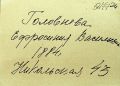 Головнова
Ефросиния Василь
1884
Никольская 43